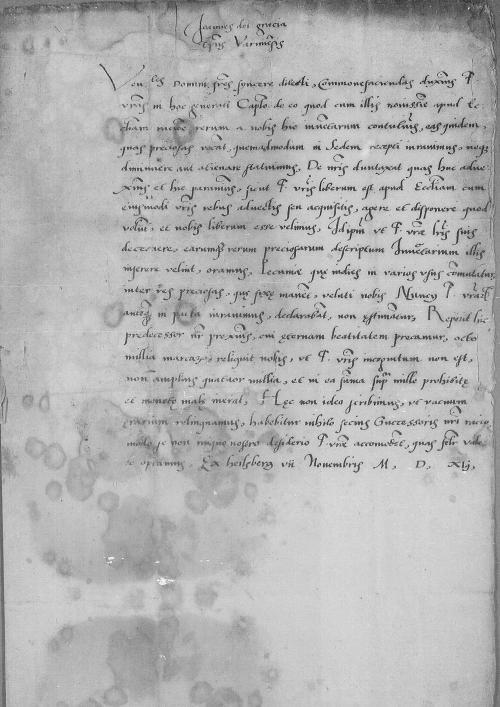 Joannes dei gracia
Ep͠us Varmień͠sis
Ven͠les Domini, fr͠es syncere dilecti, Commonefaciendas duxim͠us F.
vr͠as in hoc generali Cap͠lo de eo quod cum illis novissi͠e apud
rerum a nobis huc
quas preciosas vocat, quemadmodum in Sedem recepti iuravimus, neq͠
diminuere aut alienare statuimus, De nr͠is duntaxat quas huc advex
et hic paravimus, sicut F. vr͠is liberum est apud Eccl͠iam cum
eiusmodi vr͠is rebus advectis seu acquisitis, agere et disponere quod
volu͠t, et nobis liberum esse velimus, Id ip͠m ut F. vr͠ae lr͠is suis
earumq͠ rerum preciosarum descriptum Inve͠tarium illis
inserere velint, oramus, Pecuniae quae indies in varios usus co͠mutatur
inter res preciosas, quae fixae mane͠t, veluti nobis Nuncii F. vr͠ar
in pacta iuravimus, declaraba͠t, non Reposit hic
predecessor nr͠ proximus, cui eternam beatitatem precamur, octo
millia marcar͠, reliquit nobis, ut F. vr͠is incognitum non est,
non amplius quatuor millia, et in ea su͠ma sup͠ mille prohibitae
et monetae malae inerat, Haec non ideo scribimus, ut vacuum
erarium relinquamus, habebitur nihilo secius Successoris nr͠i racio
modo se non iniquo nostro desiderio F. vr͠ae accomode͠t, quas fel͠r vale
re optamus, Ex heilsberg vii Novembris M. D. XLi.